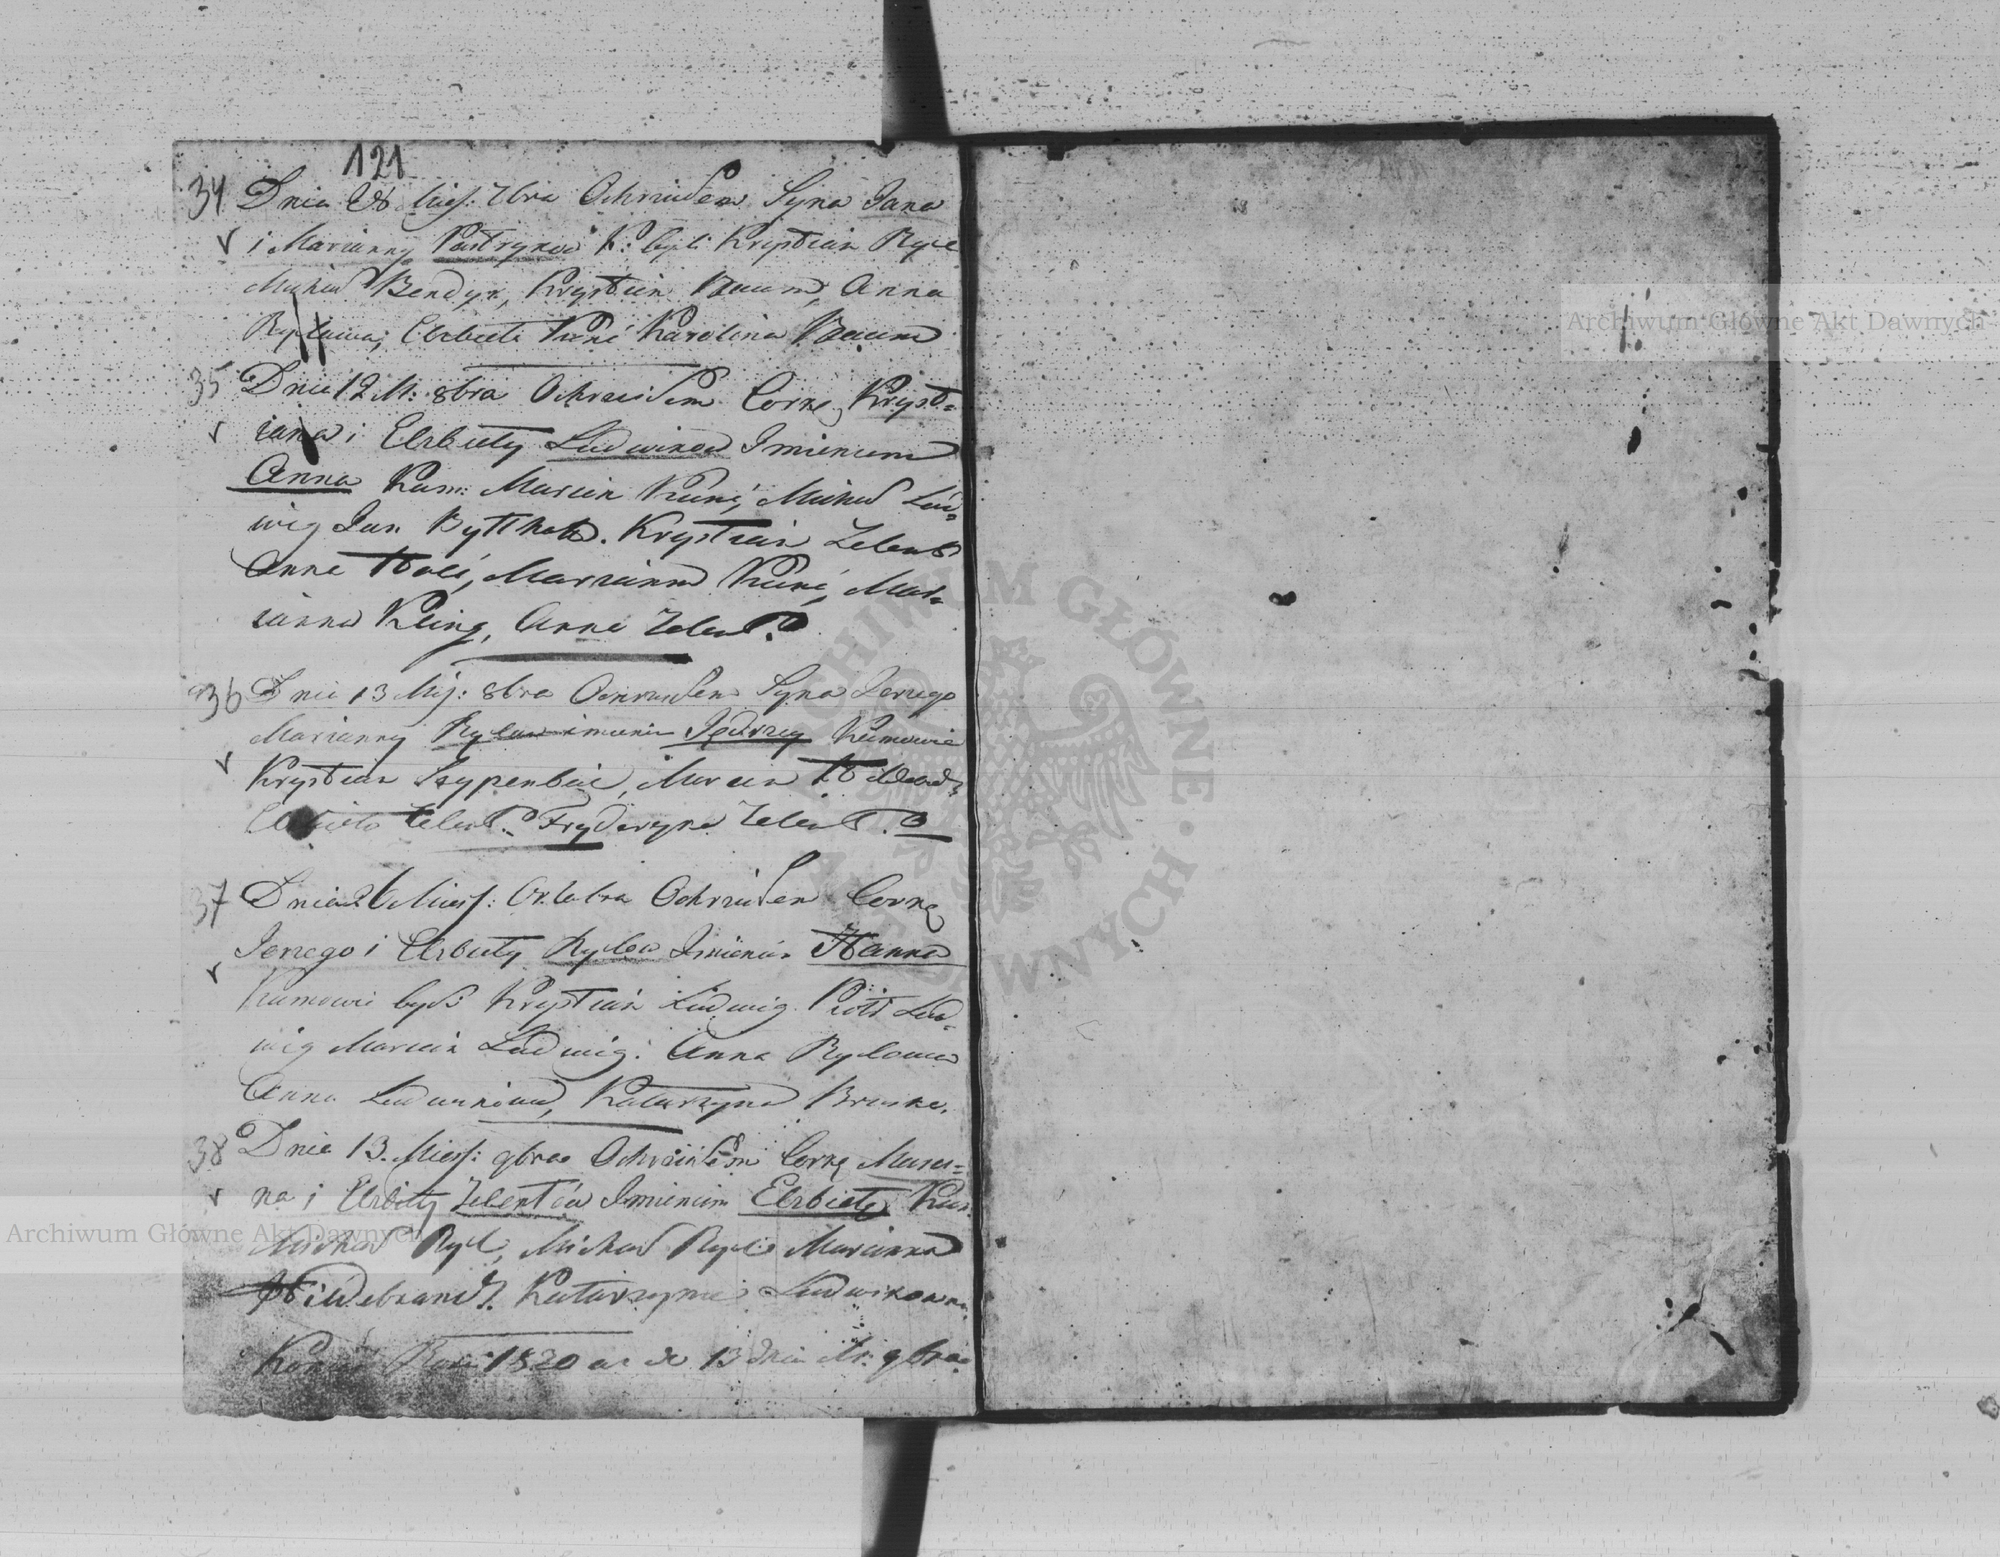 121
34 Dnia 28 Mies: 7bra Ochrzciłem Syna Jana
i Marianny Patrykow K: byli Krystian Ryl
Michał Bendyk, Krystian Baum, Anna
Rylowa, Elzbieta Kuni Karolina Baum
35 Dnia 12 M: 8bra Ochrzciłem Corkę Kryst=
iana i Elzbiety Ludwikow Imieniem
Anna Kum: Marcin Kuni, Michał Lud=
wig Jan Krystian Zelent
Anna Marianna Kuni, Mar=
ianna Kling, Anna Zelent.
36 Dnia 13 Mies: 8bra Ochrzciłem Syna Jerzego
Marianny Rylow imieniem Jędrzey Kumowie
Krystian Marcin
Elzbieta Zelent. Fryderyka Zelent.
37 Dnia 26 Mies: Octobra Ochrzciłem Corkę
Jerzego i Elzbiety Rylow Imieniem Hanna
Kumowie byli Krystian Ludwig Piotr Lud=
wig Marcin Ludwig. Anna Rylowa
Anna Ludwikowa, Katarzyna
38 Dnia 13. Mies: 9bra Ochrzciłem Corkę Marci=
na i Elzbiety Zelentow Imieniem Elzbieta Kum.
Michał Ryl, Michał Ryl Marianna
Hildebrandt. Katarzyna Ludwikowna
Koniec Roku 1820 aż do 13 dnia M. 9bra
Archiwum Główne Akt Dawnych
Archiwum Główne Akt Dawnych
ARCHIWUM GŁÓWNE AKT DAWNYCH